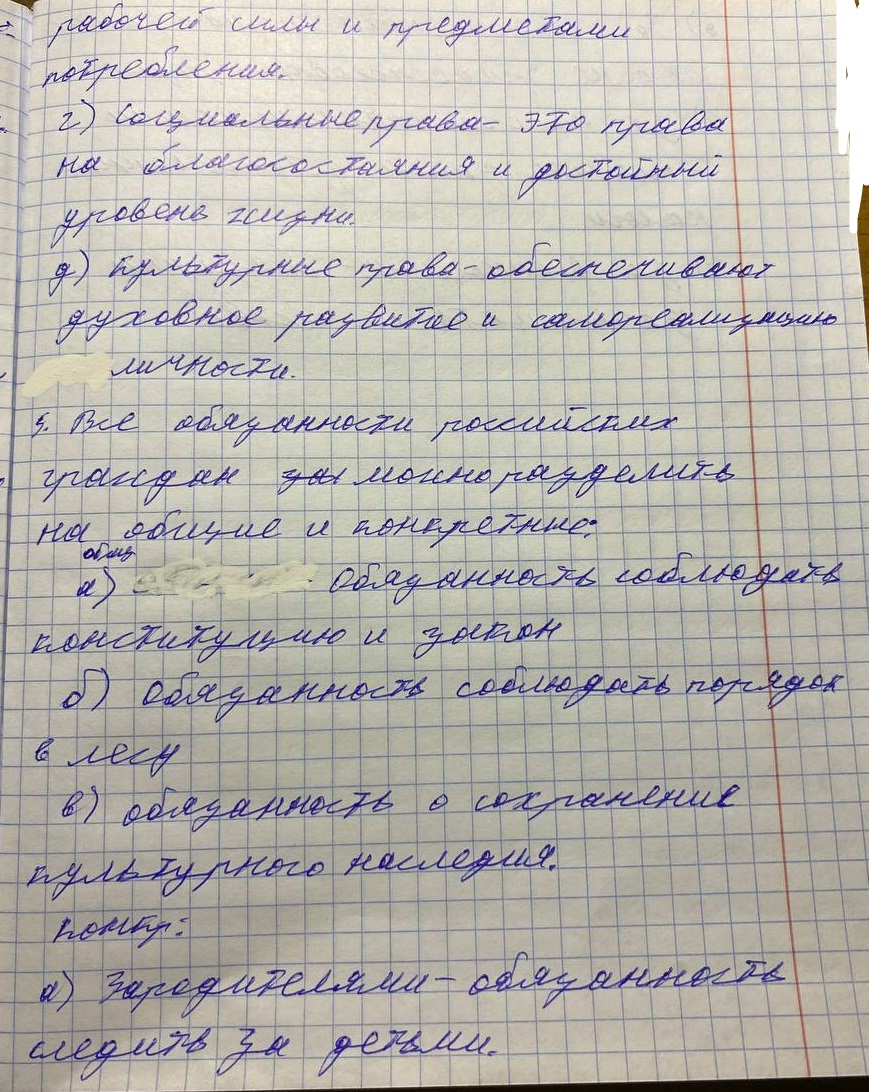 рабочей силы и предметами
потребления.
г) Социальные права - это права
на благосостояния и достойный
уровень жизни.
д) культурные права - обеспечивают
духовное развитие и самореализацию
личности.
5. Все обязанности российских
граждан можно разделить
на общие и конкретные:
общ
а) Обязанность соблюдать
конституцию и закон
б) Обязанность соблюдать порядок
в лесу
в) обязанность о сохранение
культурного наследия.
конкр:
а) За родителями - обязанность
следить за детьми.